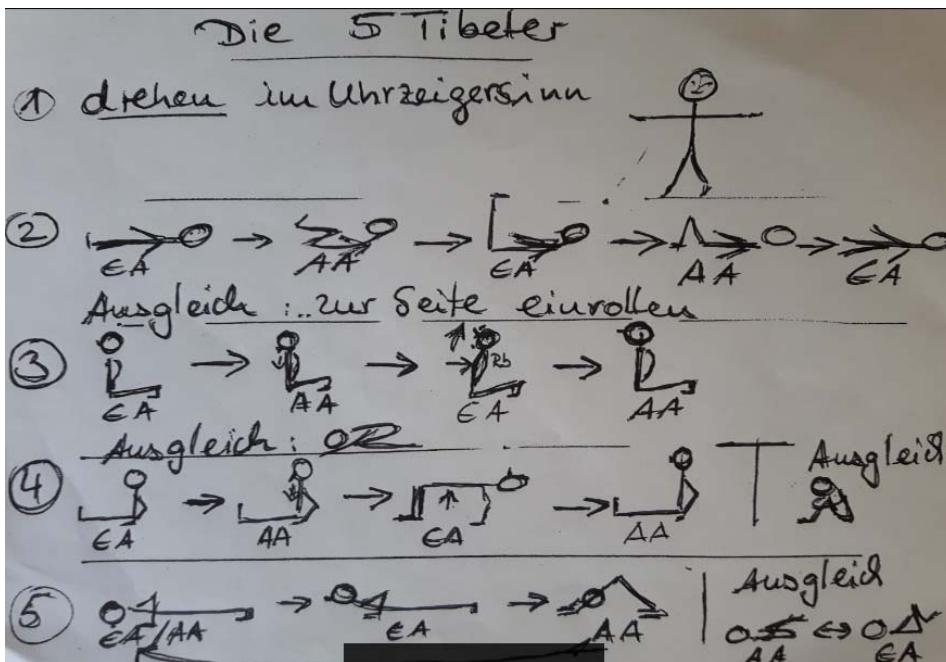 Die 5 Tibeter
① drehen im Uhrzeigersinn
②
EA AA EA AA EA
Ausgleich: ..zur Seite einrollen
③
Rb
EA AA EA AA
Ausgleich:
④ Ausgleich
EA AA EA AA
⑤ Ausgleich
EA/AA EA AA AA EA